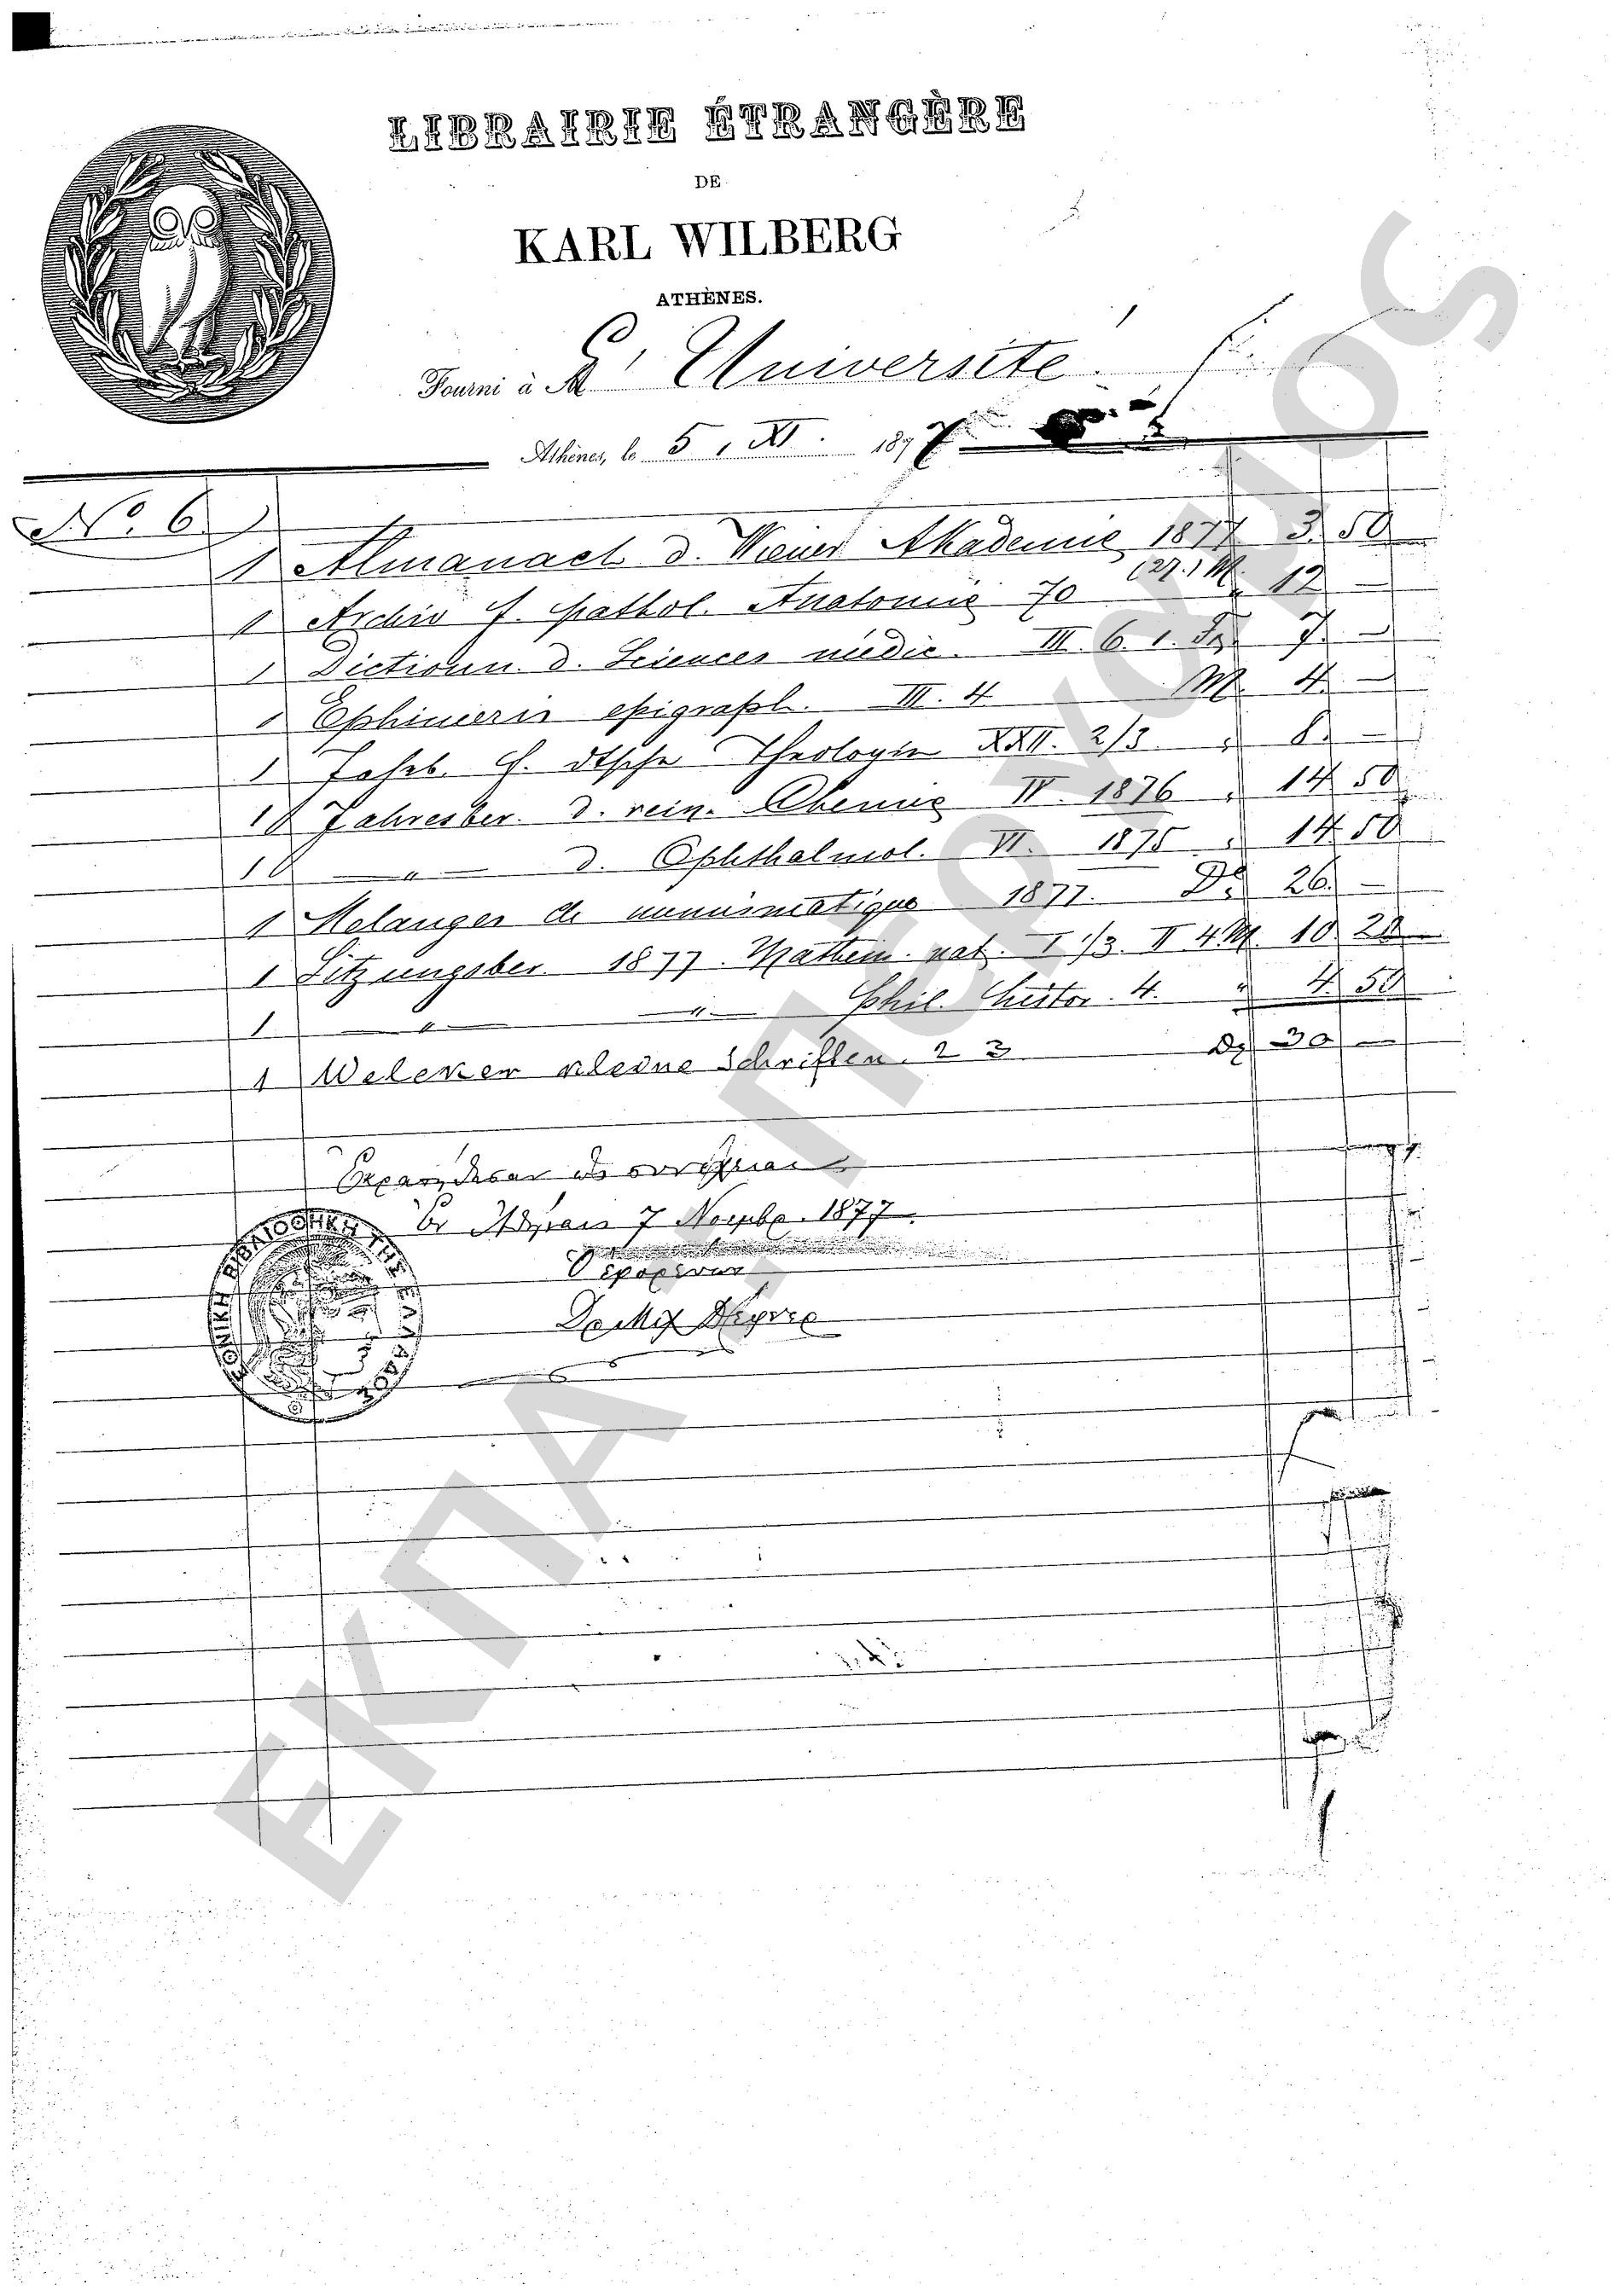 LIBRAIRIE ÉTRANGÈRE
DE
KARL WILBERG
ATHÈNES.
Fourni à M L' Université
Athènes, le 5. XI. 1877
No. 6
1 Almanach d. Wiener Akademie 1877 3. 50
1 Archiv f. pathol. Anatomie 70 (27.) M. 12 —
1 Dictionn. d. Sciences médic. III. 6. 1. Fr. 7. —
1 Ephimeris epigraph. III. 4 M. 4. —
1 Jahrb. f. dtsche Theologie XXII. 2/3. " 8. —
1 Jahresber. d. rein. Chemie IV. 1876 " 14 50
1 — " — d. Ophthalmol. VI. 1875 " 14 50
1 Melanges de numismatique 1877. 26. —
1 Sitzungsber. 1877. Mathem. nat. I 1/3. II 4 M. 10 20
1 — " — — " — Phil. histor. 4. " 4. 50
1 Welcker kleine Schriften. 2 3 30 —
7 1877.
ΒΙΒΛΙΟΘΗΚΗ ΤΗΣ
ΕΚΠΑ_ΠΕΡΓΑΜΟΣ